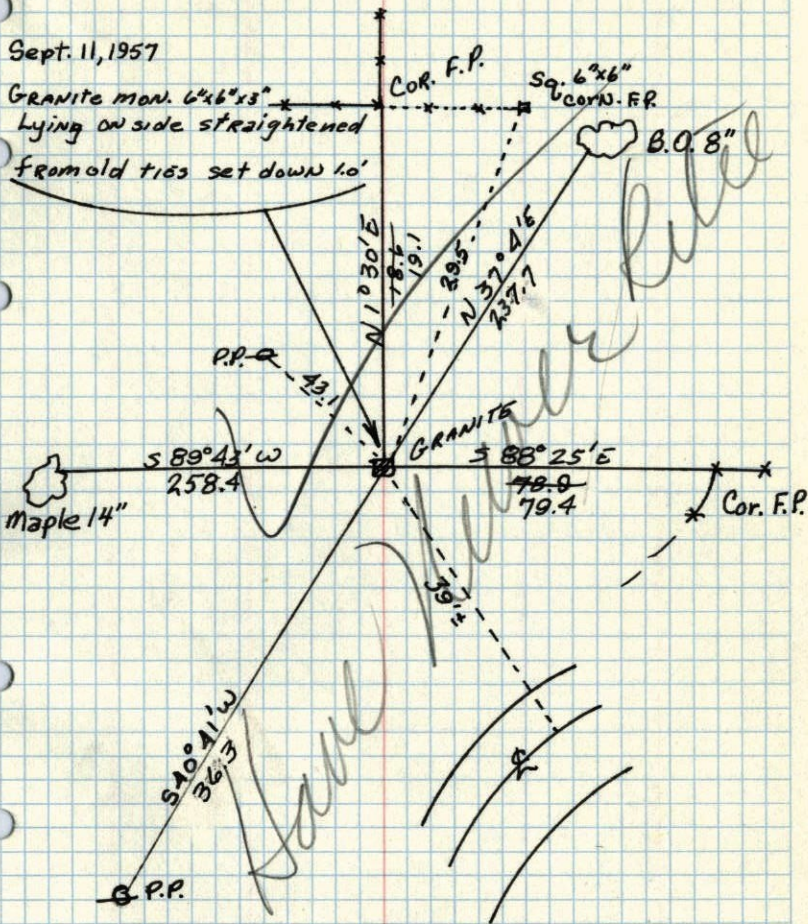 Sept. 11, 1957
GRANITE MON. 6"x6"x3"
Lying on side straightened
from old ties set down 1.0'
COR. F.P.
Sq. 6"x6"
CORN. F.P.
B.O. 8"
N 1° 30' E
18.6
19.1
39.5
N 37° 4' E
237.7
P.P.
43.1
GRANITE
S 89° 43' W
258.4
S 88° 25' E
78.9
79.4
Maple 14"
Cor. F.P.
39'±
S 40° 41' W
36.3
℄
P.P.
Have Never